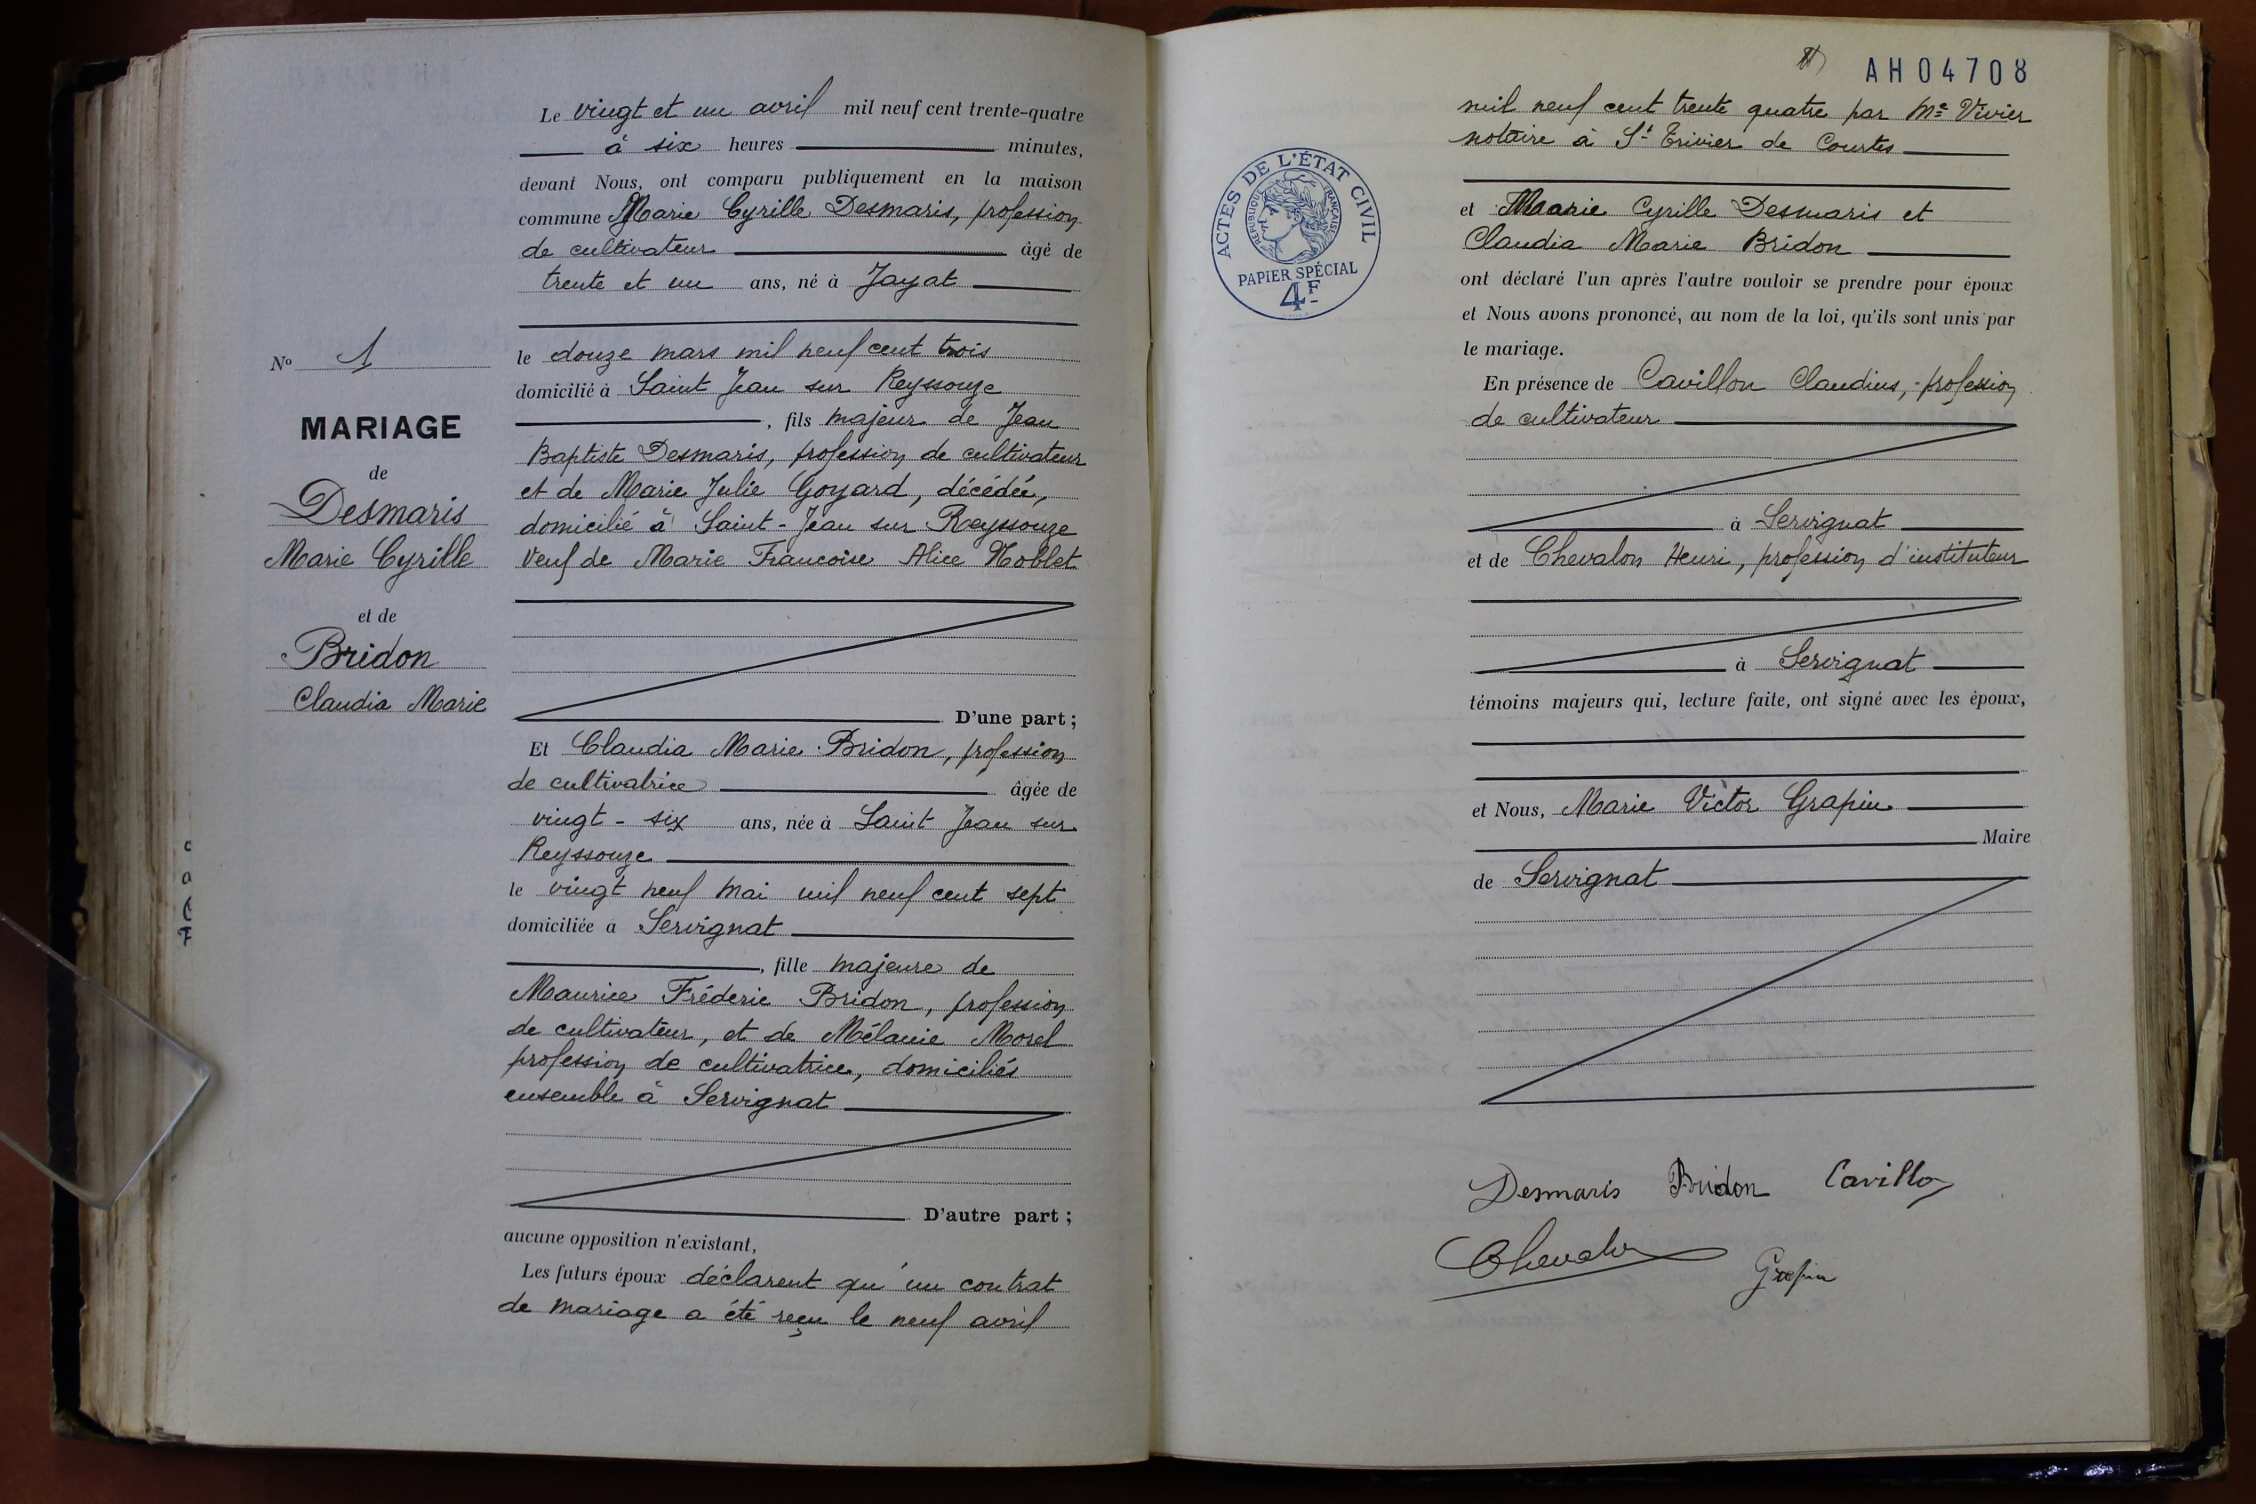 Le vingt et un avril mil neuf cent trente-quatre
à six heures minutes,
devant Nous, ont comparu publiquement en la maison
commune Marie Cyrille Desmaris, profession
de cultivateur âgé de
trente et un ans, né à Jayat
le douze mars mil neuf cent trois
domicilié à Saint Jean sur Reyssouze
, fils majeur de Jean
Baptiste Desmaris, profession de cultivateur
et de Marie Julie Goyard, décédée,
domicilié à Saint-Jean sur Reyssouze
Veuf de Marie Francoise Alice Noblet
D'une part ;
Nº 1
MARIAGE
de
Desmaris
Marie Cyrille
et de
Bridon
Claudia Marie
Et Claudia Marie Bridon, profession
de cultivatrice âgée de
vingt-six ans, née à Saint Jean sur
Reyssouze
le vingt neuf mai mil neuf cent sept
domiciliée à Servignat
, fille majeure de
Maurice Fréderic Bridon, profession
de cultivateur, et de Mélanie Morel
profession de cultivatrice, domiciliés
ensemble à Servignat
D'autre part ;
aucune opposition n'existant,
Les futurs époux déclarent qu'un contrat
de mariage a été reçu le neuf avril
AH04708
mil neuf cent trente quatre par Me Vivier
notaire à St Trivier de Courtes
ACTES DE L'ÉTAT CIVIL
RÉPUBLIQUE FRANÇAISE
PAPIER SPÉCIAL
4F
et Marie Cyrille Desmaris et
Claudia Marie Bridon
ont déclaré l'un après l'autre vouloir se prendre pour époux
et Nous avons prononcé, au nom de la loi, qu'ils sont unis par
le mariage.
En présence de Cavillon Claudius, profession
de cultivateur
à Servignat
et de Chevalon Henri, profession d'instituteur
à Servignat
témoins majeurs qui, lecture faite, ont signé avec les époux,
et Nous, Marie Victor Grapin
Maire
de Servignat
Desmaris Bridon Cavillon
Chevalon
Grapin